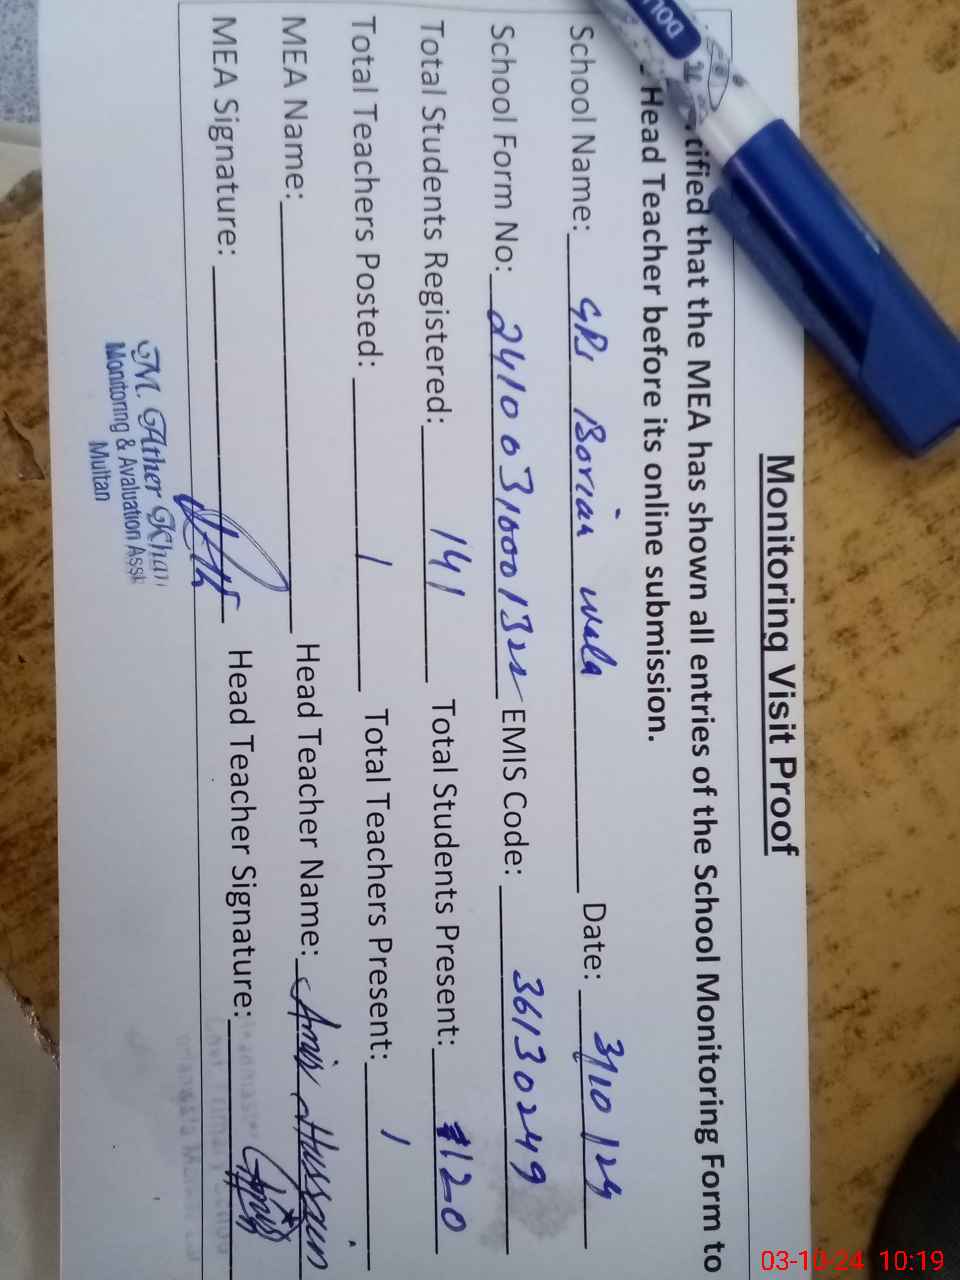 Monitoring Visit Proof
tified that the MEA has shown all entries of the School Monitoring Form to
Head Teacher before its online submission.
School Name: GPS Borian wala Date: 3/10/24
School Form No: 24100316001322 EMIS Code: 36130249
Total Students Registered: 141 Total Students Present: 120
Total Teachers Posted: 1 Total Teachers Present: 1
MEA Name: Head Teacher Name: Amir Hussain
MEA Signature: Head Teacher Signature:
M. Ather Khan
Monitoring & Avaluation Asst
Multan
DOL
03-10-24 10:19